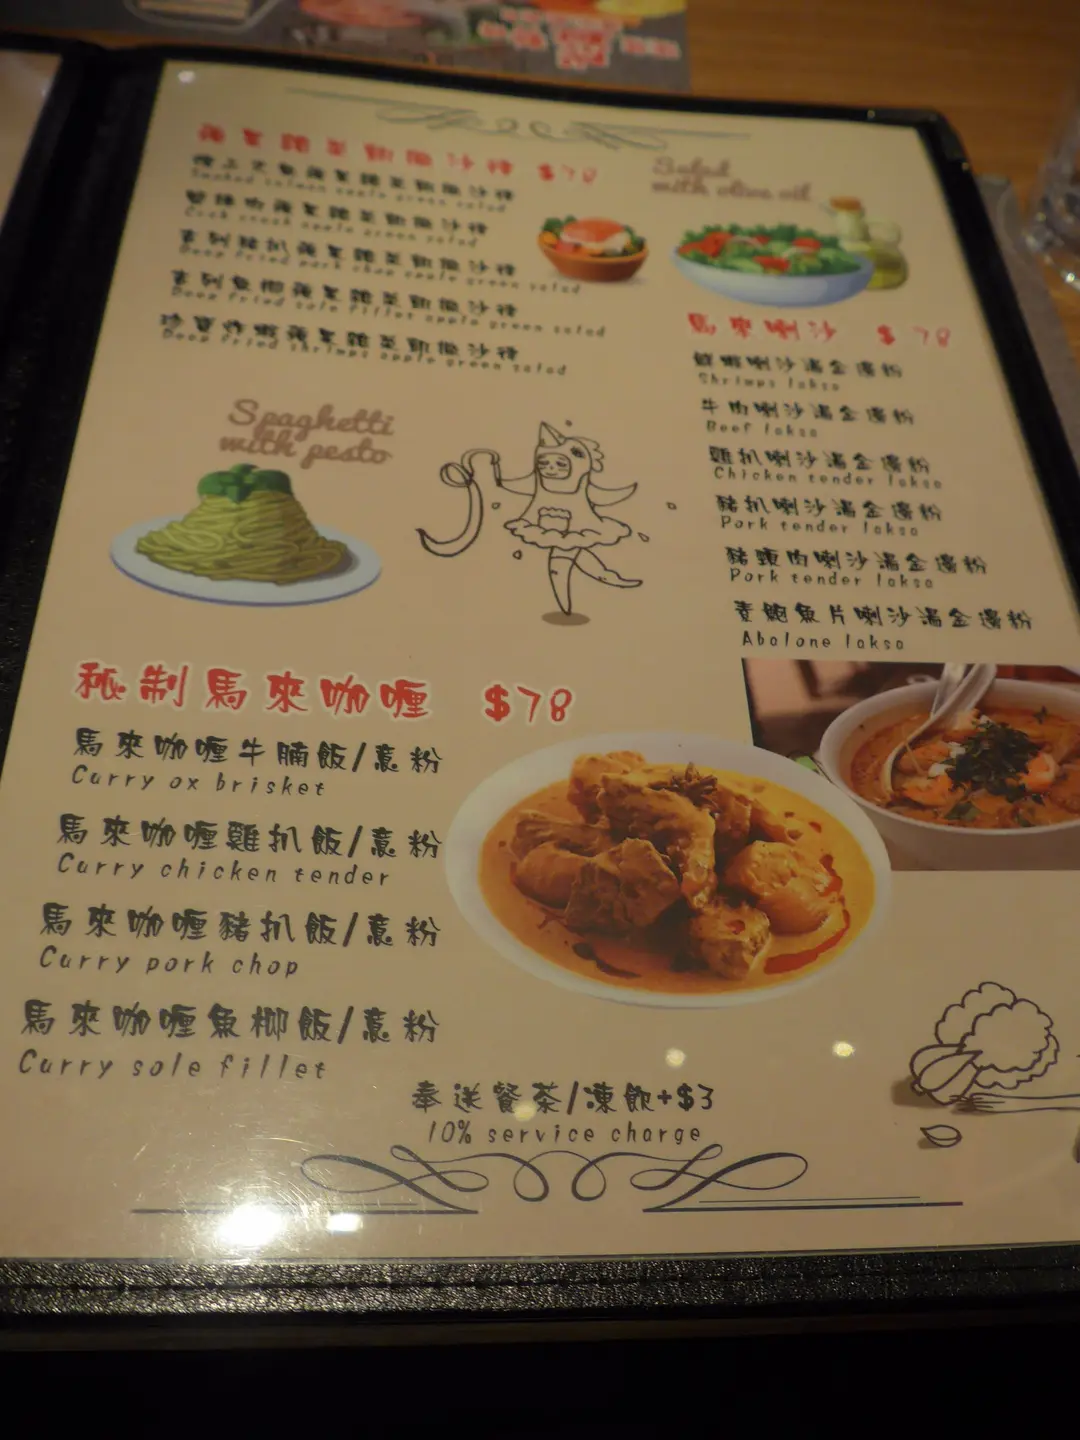 蘋果雜菜凱撒沙律 $78
煙三文魚蘋果雜菜凱撒沙律
Smoked salmon apple green salad
蟹柳肉蘋果雜菜凱撒沙律
apple green salad
吉列豬扒蘋果雜菜凱撒沙律
Deep fried pork chop apple green salad
吉列魚柳蘋果雜菜凱撒沙律
Deep fried sole fillet apple green salad
珍寶炸蝦蘋果雜菜凱撒沙律
Deep fried shrimps apple green salad
Salad
with olive oil
馬來喇沙 $78
鮮蝦喇沙湯金邊粉
Shrimps laksa
牛肉喇沙湯金邊粉
Beef laksa
雞扒喇沙湯金邊粉
Chicken tender laksa
豬扒喇沙湯金邊粉
Pork tender laksa
豬頸肉喇沙湯金邊粉
Pork tender laksa
素鮑魚片喇沙湯金邊粉
Abalone laksa
Spaghetti
with pesto
秘制馬來咖喱 $78
馬來咖喱牛腩飯/意粉
Curry ox brisket
馬來咖喱雞扒飯/意粉
Curry chicken tender
馬來咖喱豬扒飯/意粉
Curry pork chop
馬來咖喱魚柳飯/意粉
Curry sole fillet
奉送餐茶/凍飲+$3
10% service charge